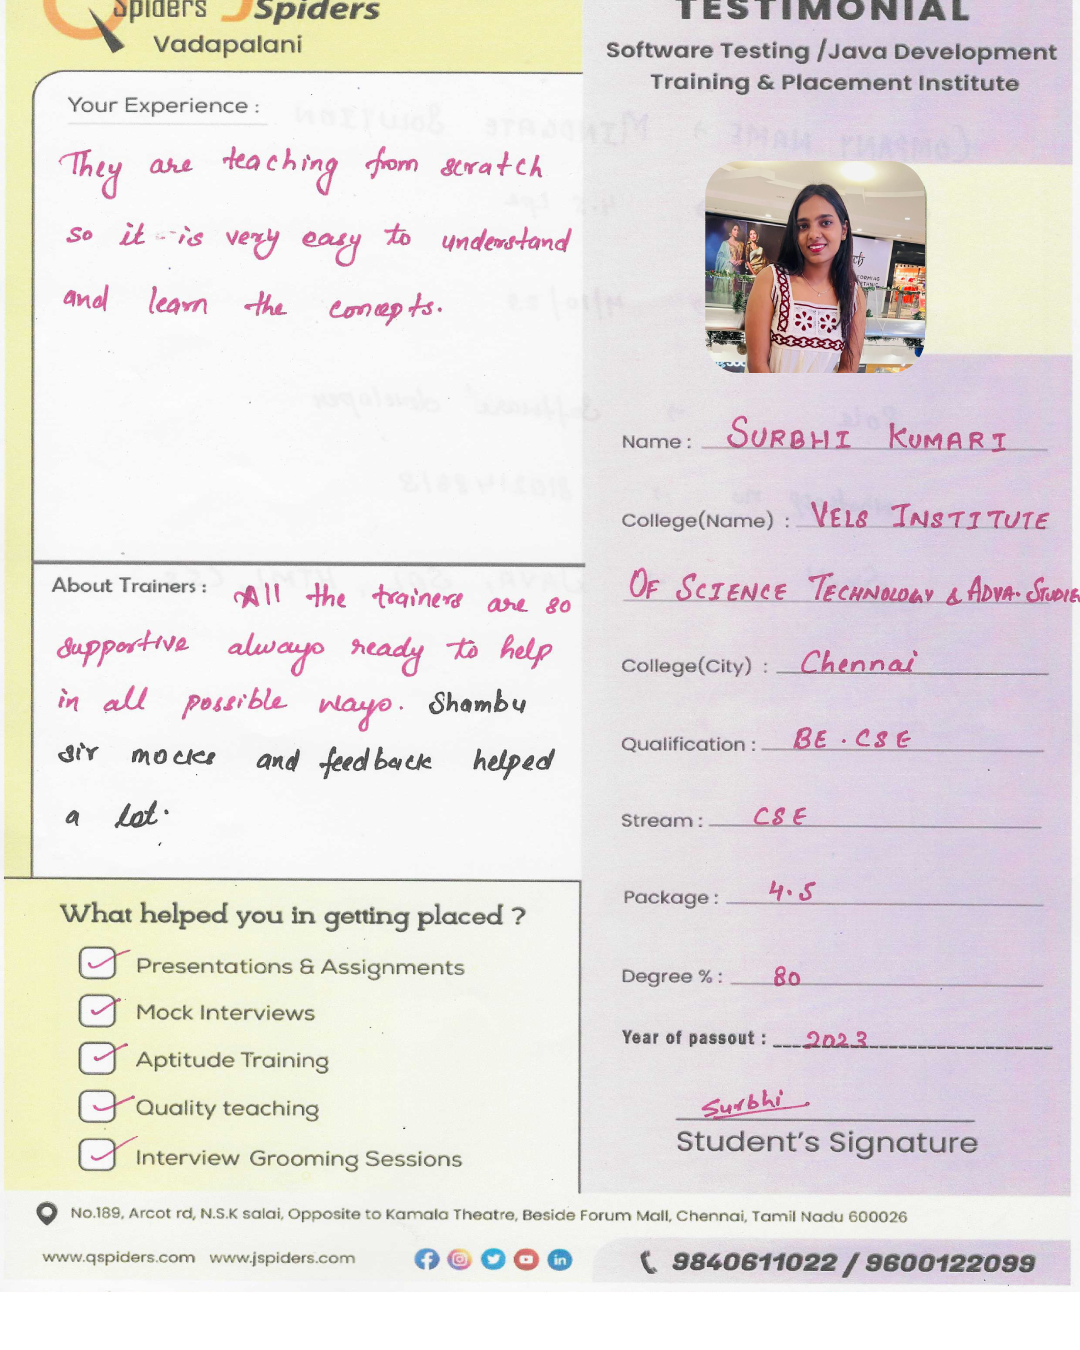 Spiders Spiders
Vadapalani
TESTIMONIAL
Software Testing /Java Development
Training & Placement Institute
Your Experience :
They are teaching from scratch
so it is very easy to understand
and learn the concepts.
About Trainers : All the trainers are so
supportive always ready to help
in all possible ways. Shambu
sir mocks and feedback helped
a lot.
What helped you in getting placed ?
Presentations & Assignments
Mock Interviews
Aptitude Training
Quality teaching
Interview Grooming Sessions
Name : SURBHI KUMARI
College(Name) : VELS INSTITUTE
OF SCIENCE TECHNOLOGY & ADVA. STUDIE
College(City) : Chennai
Qualification : BE . CSE
Stream : CSE
Package : 4.5
Degree % : 80
Year of passout : 2023
Surbhi
Student's Signature
No.189, Arcot rd, N.S.K salai, Opposite to Kamala Theatre, Beside Forum Mall, Chennai, Tamil Nadu 600026
www.qspiders.com www.jspiders.com
9840611022 / 9600122099